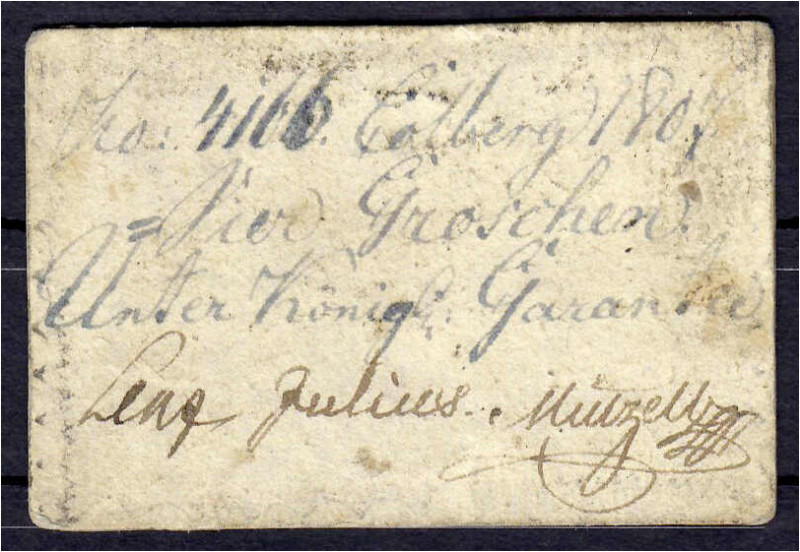 No: 4166. Colberg 1807
= Vier Groschen.
Unter Königl: Garantie.
Lenz Julius. Mützell